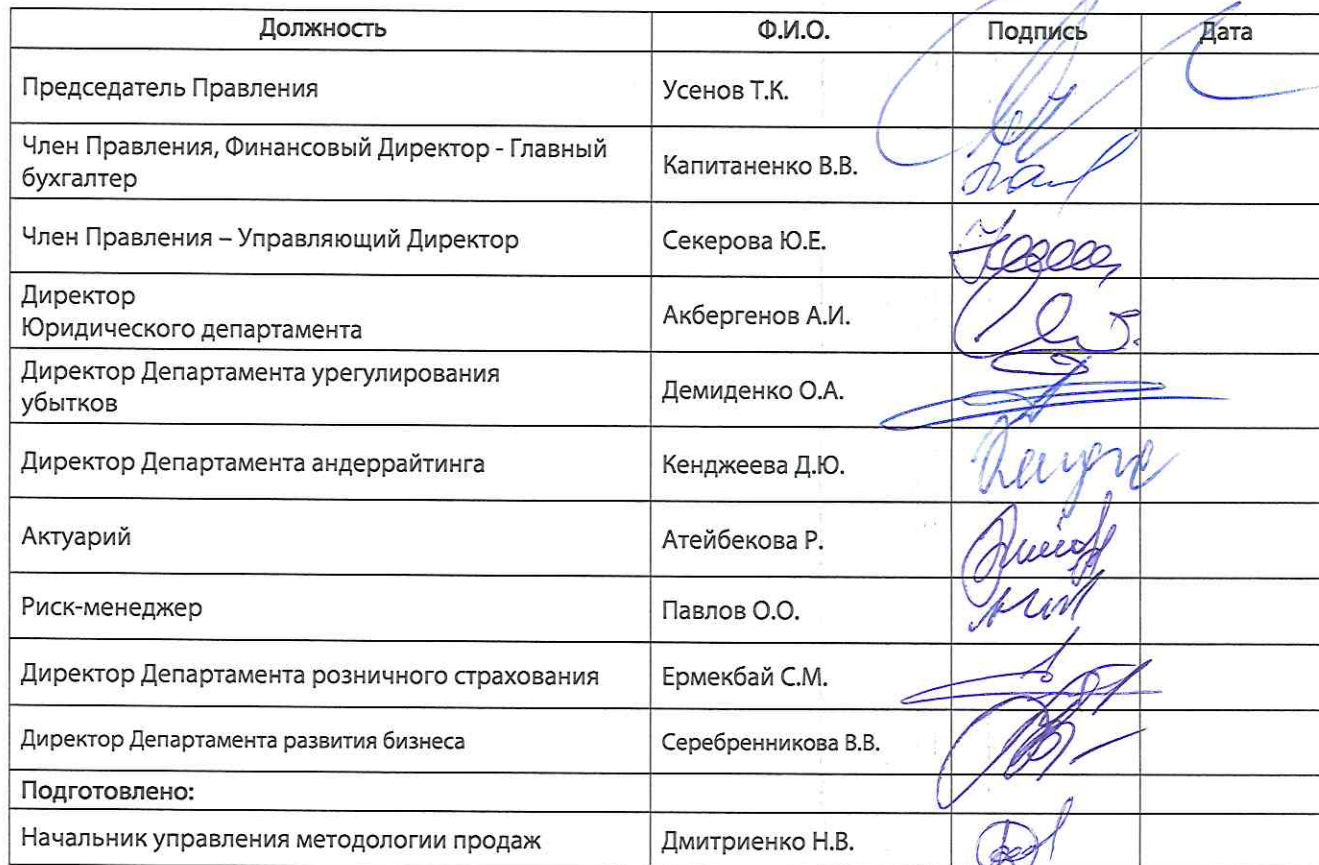 Должность Ф.И.О. Подпись Дата
Председатель Правления Усенов Т.К.
Член Правления, Финансовый Директор - Главный
бухгалтер Капитаненко В.В.
Член Правления – Управляющий Директор Секерова Ю.Е.
Директор
Юридического департамента Акбергенов А.И.
Директор Департамента урегулирования
убытков Демиденко О.А.
Директор Департамента андеррайтинга Кенджеева Д.Ю.
Актуарий Атейбекова Р.
Риск-менеджер Павлов О.О.
Директор Департамента розничного страхования Ермекбай С.М.
Директор Департамента развития бизнеса Серебренникова В.В.
Подготовлено:
Начальник управления методологии продаж Дмитриенко Н.В.